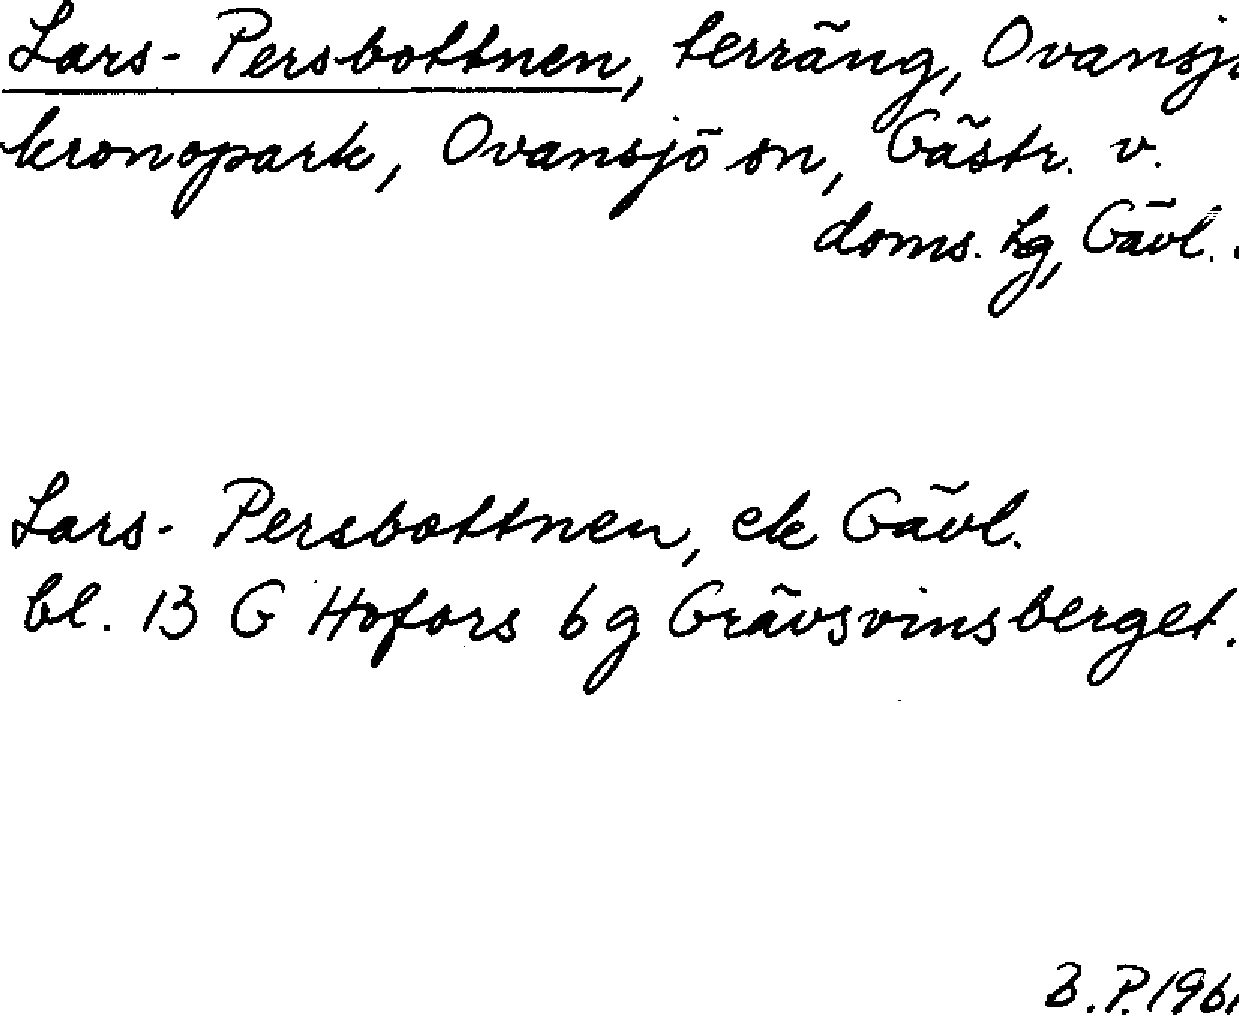 Lars-Persbottnen, terräng, Ovansjö
kronopark, Ovansjö sn, Gästr. v.
doms. hg, Gävl.
Lars-Persbottnen, ek Gävl.
bl. 13 G Hofors 6g Grävsvinsberget.
B.P. 1961